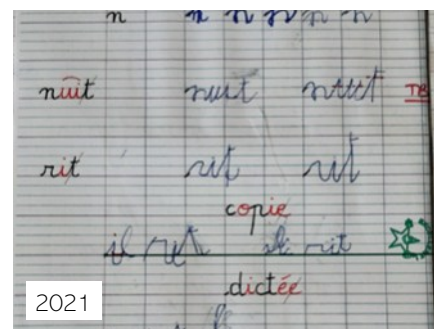 n n n n n n
nuit nuit nuit TB
rit rit rit
copie
il rit il rit
dictée
2021